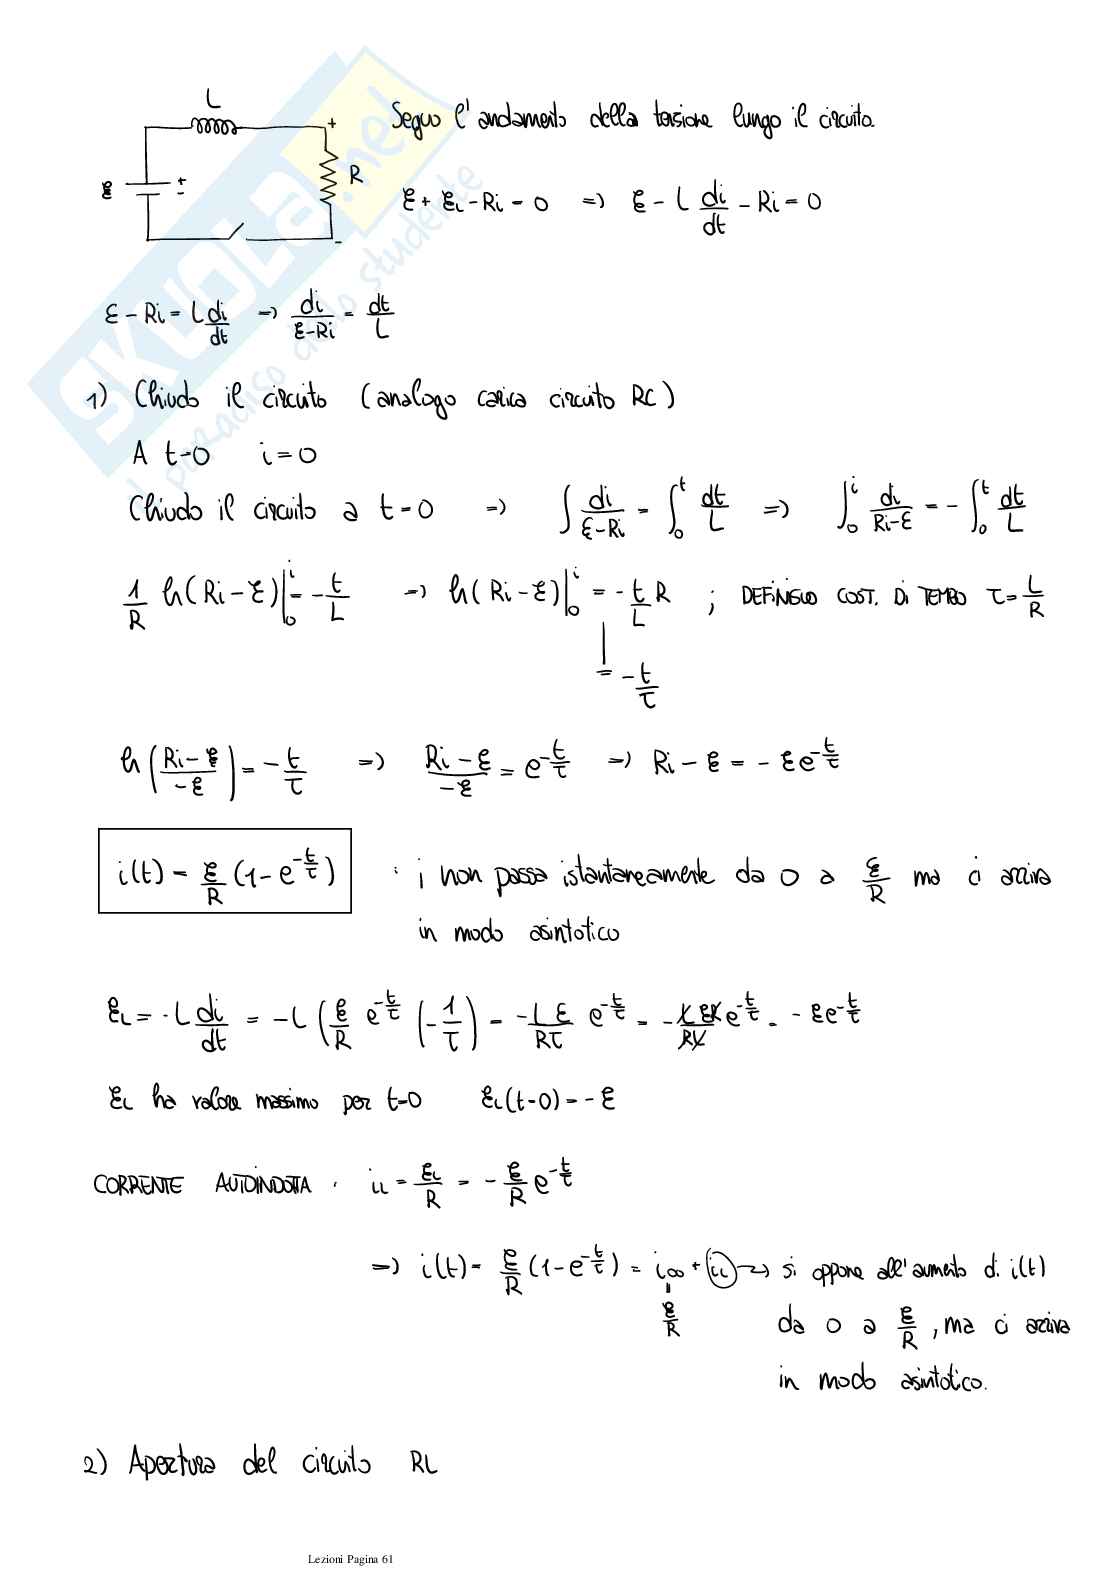 L
ε
+
-
+
R
-
Seguo l'andamento della tensione lungo il circuito.
ε + ε_L - Ri = 0 => ε - L di/dt - Ri = 0
ε - Ri = L di/dt => di/(ε-Ri) = dt/L
1) Chiudo il circuito (analogo carica circuito RC)
A t=0 i=0
Chiudo il circuito a t=0 => ∫ di/(ε-Ri) = ∫₀^t dt/L => ∫₀^i di/(Ri-ε) = -∫₀^t dt/L
1/R ln(Ri-ε)|₀^i = -t/L => ln(Ri-ε)|₀^i = -t/L R ; DEFINISCO COST. DI TEMPO τ = L/R
= -t/τ
ln((Ri-ε)/-ε) = -t/τ => (Ri-ε)/-ε = e^(-t/τ) => Ri - ε = -εe^(-t/τ)
i(t) = ε/R (1-e^(-t/τ)) : i non passa istantaneamente da 0 a ε/R ma ci arriva
in modo asintotico
ε_L = -L di/dt = -L (ε/R e^(-t/τ) (-1/τ) = -Lε/Rτ e^(-t/τ) = -LεR/RL e^(-t/τ) = -εe^(-t/τ)
ε_L ha valore massimo per t=0 ε_L(t=0) = -ε
CORRENTE AUTOINDOTTA: i_L = ε_L/R = -ε/R e^(-t/τ)
=> i(t) = ε/R (1-e^(-t/τ)) = i∞ + i_L → si oppone all'aumento di i(t)
= ε/R
da 0 a ε/R, ma ci arriva
in modo asintotico.
2) Apertura del circuito RL
Lezioni Pagina 61
SKUOLA.net
il paradiso dello studente